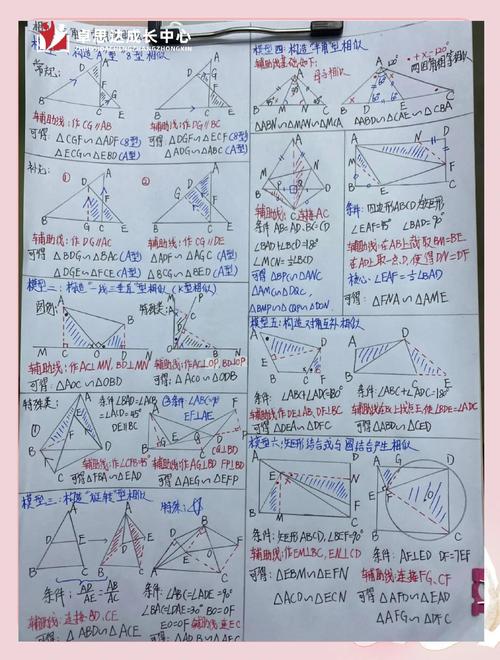 卓思达成长中心
模型一：构造"A型""8型"相似
常规：
辅助线：作CG∥AB
可得：△CGF∽△ADF(8型)
△ECG∽△EBD(A型)
辅助线：作DG∥BC
可得：△DGF∽△ECF(8型)
△ADG∽△ABC(A型)
补充：
① ②
辅助线：作DG∥AC
可得：△BDG∽△BAC(A型)
△DGE∽△FCE(A型)
辅助线：作CG∥DE
可得：△ADF∽△AGC(A型)
△BCG∽△BED(A型)
模型二：构造"一线三垂直"型相似(K型相似)
图例：
特殊类：
辅助线：作AC⊥MN, BD⊥MN
可得：△AOC∽△OBD
辅助线：作AC⊥OP, BD⊥OP
可得：△ACO∽△ODB
特殊类：
条件：∠BAD=∠ACB
DE∥BC
可得：△FBA∽△EAD
②条件：∠ABC=90°
EF⊥AE
CG⊥BD
辅助线：作AG⊥BD FP⊥BD
可得：△AEG∽△EFP
模型三：构造"旋转"型相似
特殊：
条件：AD/AE=AB/AC
辅助线：连接BD,CE
可得：△ABD∽△ACE
条件：∠ABC=∠ADE=90°
∠BAC=∠DAE=30° BO=OF
EO=OF 辅助线：连EC
可得：△ABD∽△ACE
模型四：构造"半角型"相似
辅助线基础如下：
母子相似
△ABN∽△MAN∽△MCA
△ABD∽△CAE∽△CBA
辅助线：连接AC
条件 AB=AD·BC=CD
∠MCN=½∠BCD
可得 △BPC∽△ANC
△AMC∽△DQC
△BMP∽△CQP∽△DQN
条件：四边形ABCD为矩形
∠EAF=45° ∠BAD=90°
辅助线：在AB上截取BM=BE
在AD上取一点N,使得DN=DF
核心∠EAF=½∠BAD
可得：△FNA∽△AME
模型五：构造对角互补相似
条件∠ABC+∠ADC=180°
辅助线 DE⊥AB, DF⊥BC
可得：△DEA∽△DFC
条件：∠ABC+∠ADC=180°
辅助线：在BC上找点E,使∠BDE=∠ADC
可得：△ABD∽△CED
模型六：矩形结合或与圆结合产生相似
条件：矩形ABCD,∠BEF=90°
辅助线：作EM⊥BC, EN⊥CD
可得：△EBM∽△EFN
△ACD∽△ECN
条件：AF⊥ED DF=7EF
辅助线：连接FG、CF
可得：△AFD∽△EAD
△AFG∽△DFC